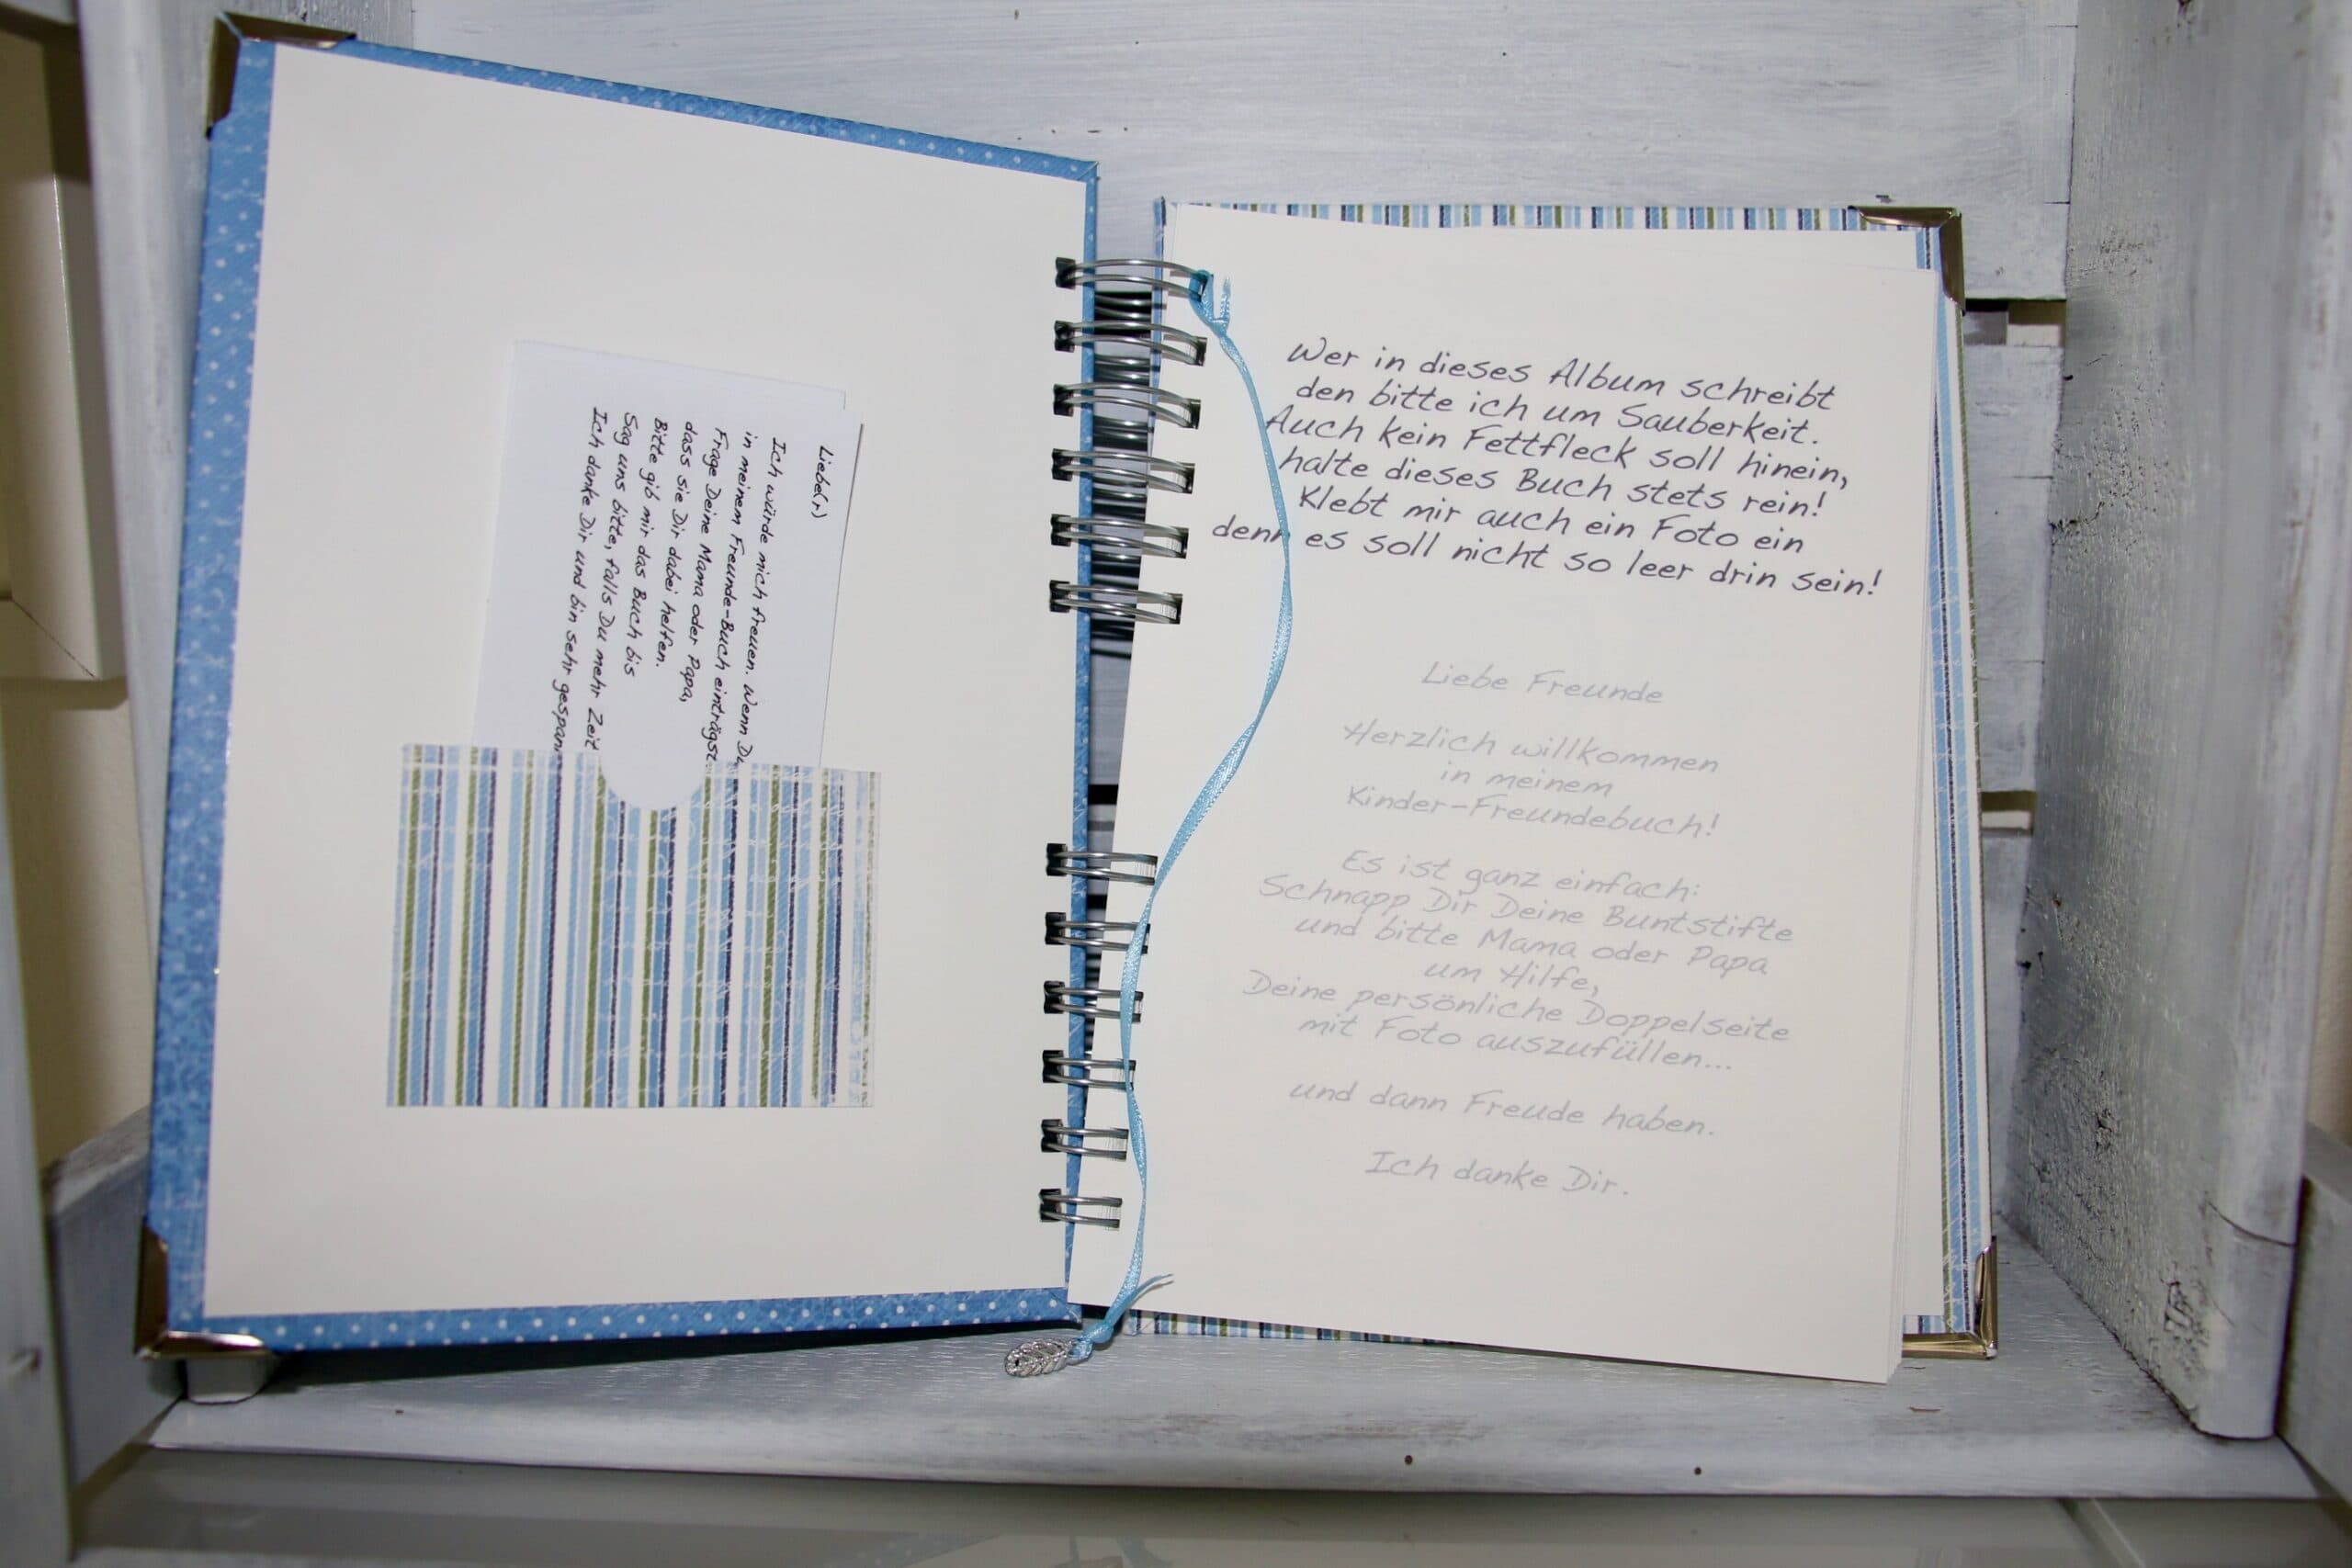 Liebe(r)
Ich würde mich freuen. Wenn Du
in meinem Freunde-Buch einträgst
Frage Deine Mama oder Papa,
dass sie Dir dabei helfen.
Bitte gib mir das Buch bis
Sag uns bitte, falls Du mehr Zeit
Ich danke Dir und bin sehr
Wer in dieses Album schreibt
den bitte ich um Sauberkeit.
Auch kein Fettfleck soll hinein,
halte dieses Buch stets rein!
Klebt mir auch ein Foto ein
denn es soll nicht so leer drin sein!
Liebe Freunde
Herzlich willkommen
in meinem
Kinder-Freundebuch!
Es ist ganz einfach:
Schnapp Dir Deine Buntstifte
und bitte Mama oder Papa
um Hilfe,
Deine persönliche Doppelseite
mit Foto auszufüllen...
und dann Freude haben.
Ich danke Dir.